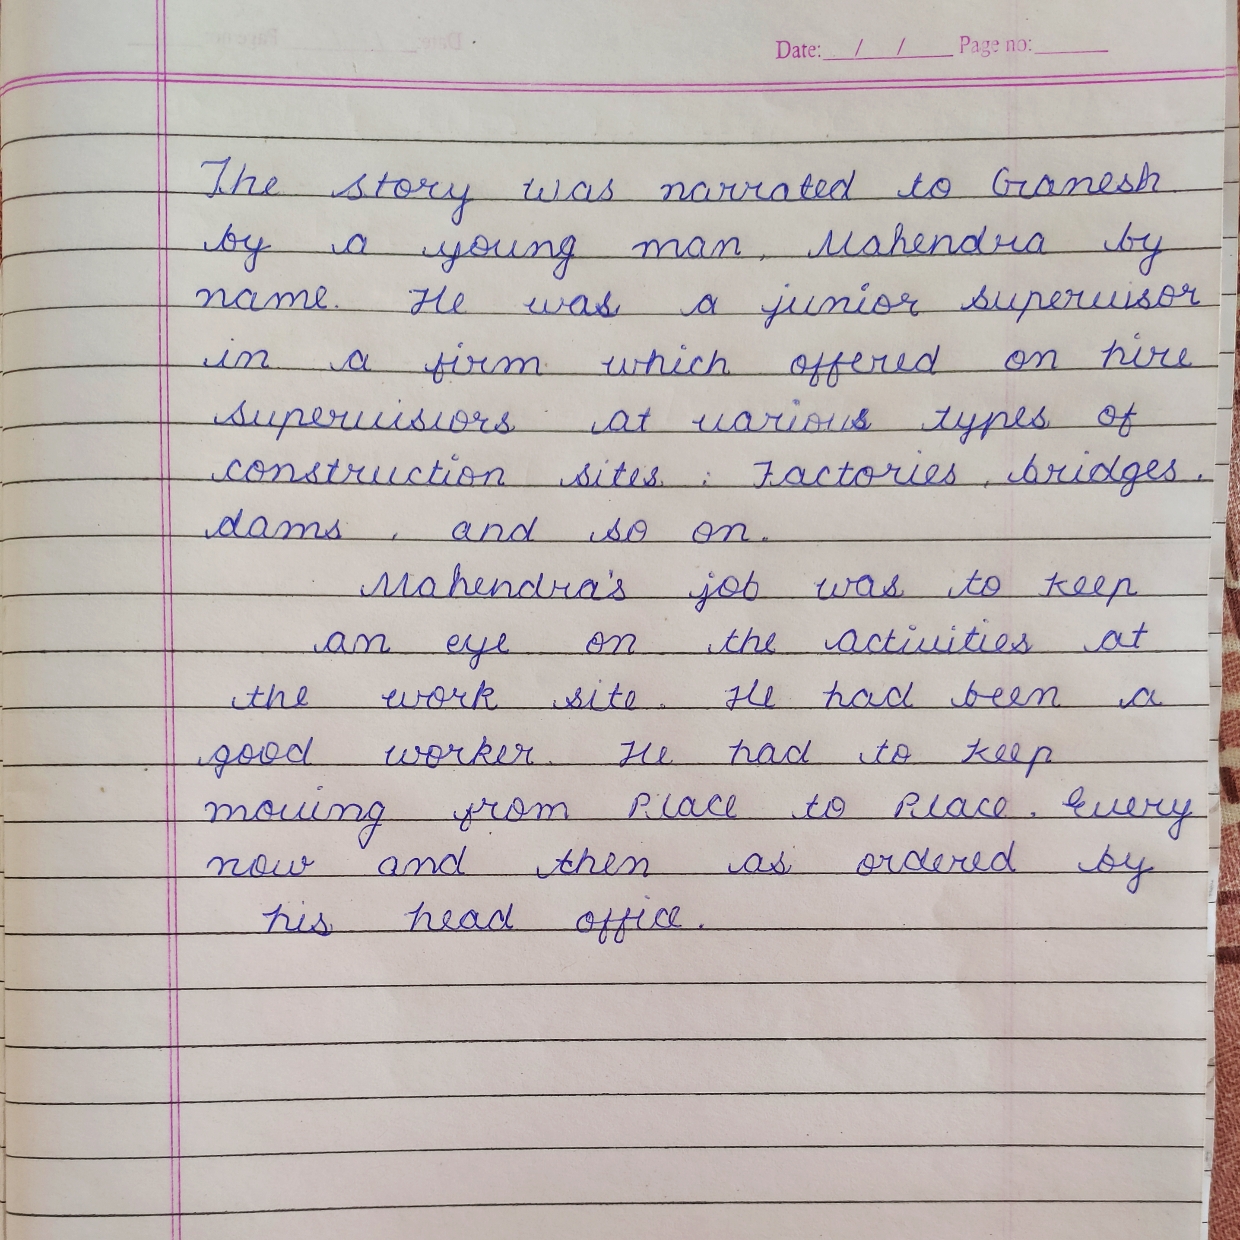 Date: __/__/____ Page no: ______
The story was narrated to Ganesh
by a young man, Mahendra by
name. He was a junior supervisor
in a firm which offered on hire
supervisiors at various types of
construction sites : Factories, bridges,
dams, and so on.
Mahendra's job was to keep
an eye on the activities at
the work site. He had been a
good worker. He had to keep
moving from Place to Place. Every
now and then as ordered by
his head office.